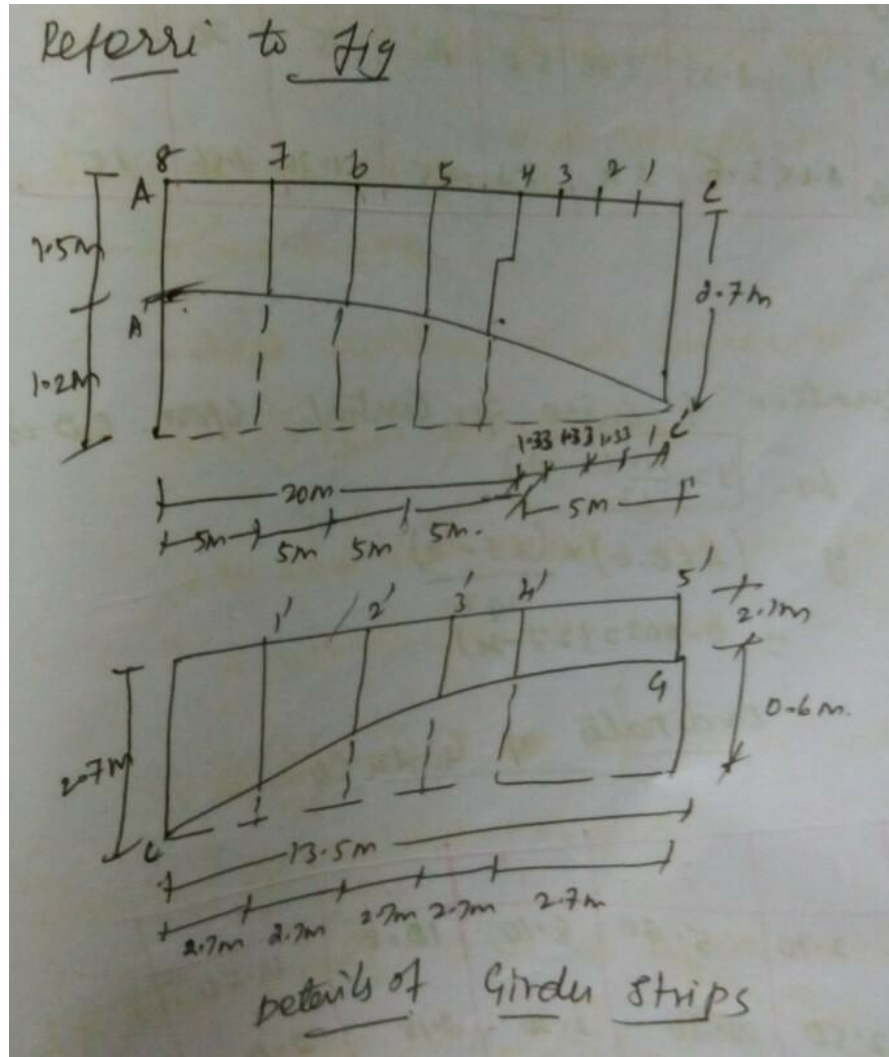 Referri to Fig
8 7 6 5 4 3 2 1
A C
1.5m
2.7m
A'
1.2m
C'
1.33 1.33 1.33 1
20m
5m
5m 5m 5m 5m
1' 2' 3' 4' 5'
2.1m
G
0.6m
2.7m
C
13.5m
2.7m 2.7m 2.7m 2.7m 2.7m
Details of Girder Strips